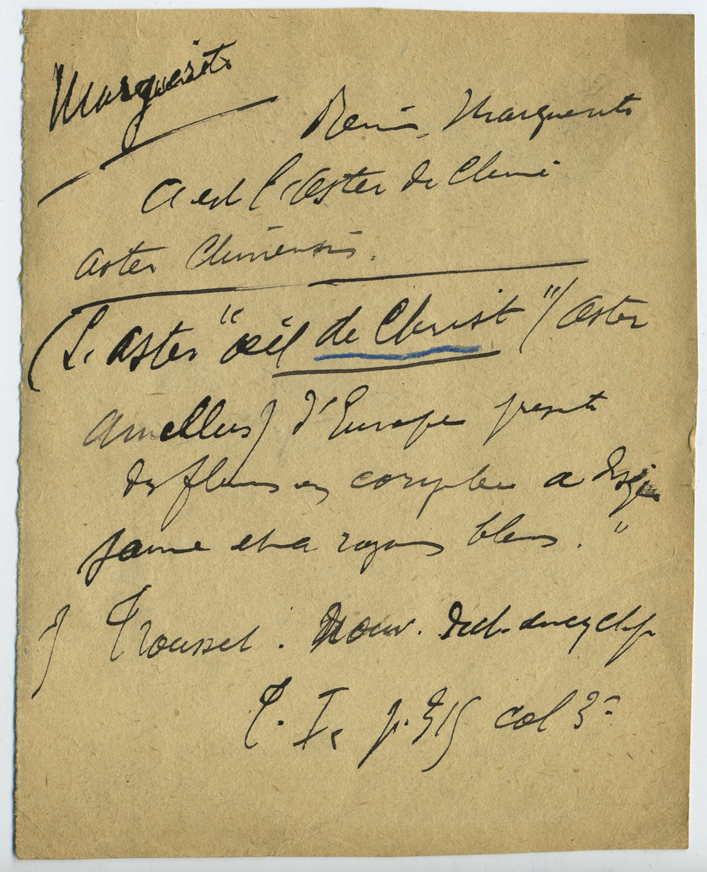 Marguerite
Reine Marguerite
C'est l'Aster de Chine
Aster Chinensis.
(L'Aster "œil de Christ" (Aster
Amellus) d'Europe presente
des fleurs en corymbe a disque
jaune et a rayons bleus."
J Trousset. Nouv. Dict. encyclop
T. I, p. 315 col 3e